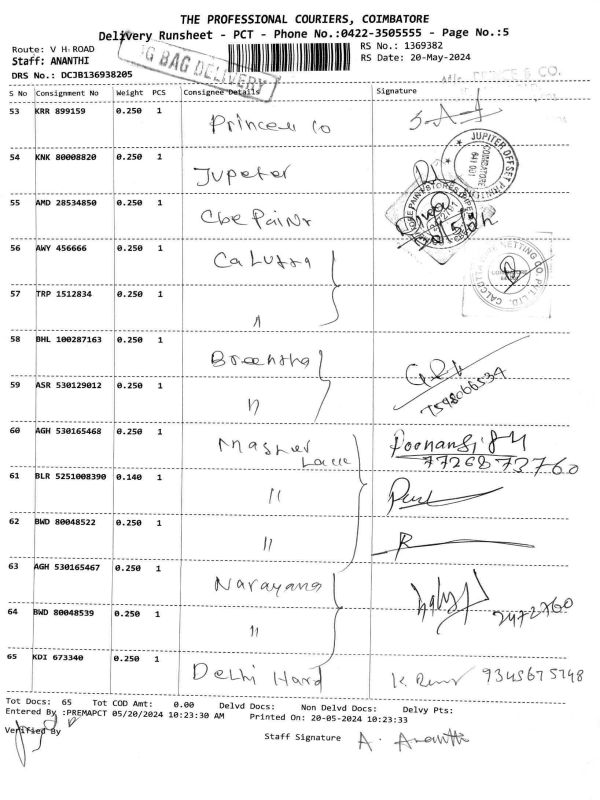 THE PROFESSIONAL COURIERS, COIMBATORE
Delivery Runsheet - PCT - Phone No.:0422-3505555 - Page No.:5
Route: V H ROAD
Staff: ANANTHI
DRS No.: DCJB136938205
G BAG DELIVERY
RS No.: 1369382
RS Date: 20-May-2024
S No Consignment No Weight PCS Consignee Details Signature
53 KRR 899159 0.250 1 Princess Co
54 KNK 80008820 0.250 1 Jupeter
JUPITER OFFSET PRINTERS
COIMBATORE
641 001
55 AMD 28534850 0.250 1 Cbe Paint
56 AWY 456666 0.250 1 Calutta
57 TRP 1512834 0.250 1 "
58 BHL 100287163 0.250 1
59 ASR 530129012 0.250 1 "
7598066534
60 AGH 530165468 0.250 1
7726873760
61 BLR 5251008390 0.140 1 "
62 BWD 80048522 0.250 1 "
63 AGH 530165467 0.250 1 Narayana
64 BWD 80048539 0.250 1 "
2472760
65 KDI 673340 0.250 1 Delhi Hard
9345675748
Tot Docs: 65 Tot COD Amt: 0.00 Delvd Docs: Non Delvd Docs: Delvy Pts:
Entered By :PREMAPCT 05/20/2024 10:23:30 AM Printed On: 20-05-2024 10:23:33
Verified By
Staff Signature A. Ananthi